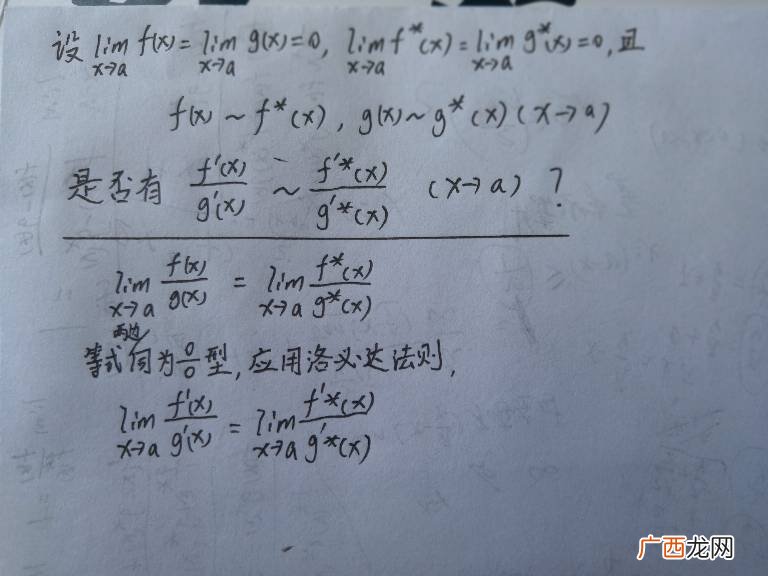 设 lim f(x) = lim g(x) = 0, lim f*(x) = lim g*(x) = 0, 且
x→a x→a x→a x→a
f(x) ~ f*(x), g(x) ~ g*(x) (x→a)
是否有 f'(x)/g'(x) ~ f'*(x)/g'*(x) (x→a) ?
lim x→a f(x)/g(x) = lim x→a f*(x)/g*(x)
等式两边同为 0/0 型, 应用洛必达法则,
lim x→a f'(x)/g'(x) = lim x→a f'*(x)/g'*(x)
广西龙网